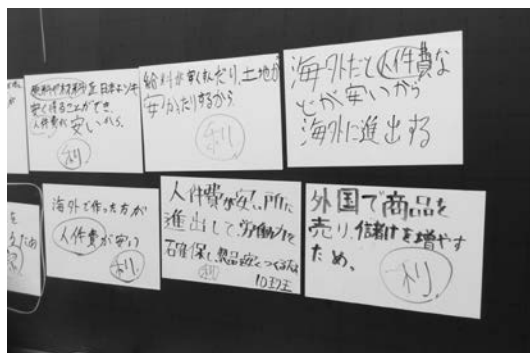 原料や材料を日本よりも
安く得ることができ、
人件費が安いから、
利
給料が安くすんだり、土地が
安かったりするから
利
海外だと人件費な
どが安いから
海外に進出する
海外で作った方が
人件費が安い
利
人件費が安い所に
進出して、労働力を
確保し、製品を安くつくるため
利
外国で商品を
売り、儲けを増やす
ため、
利